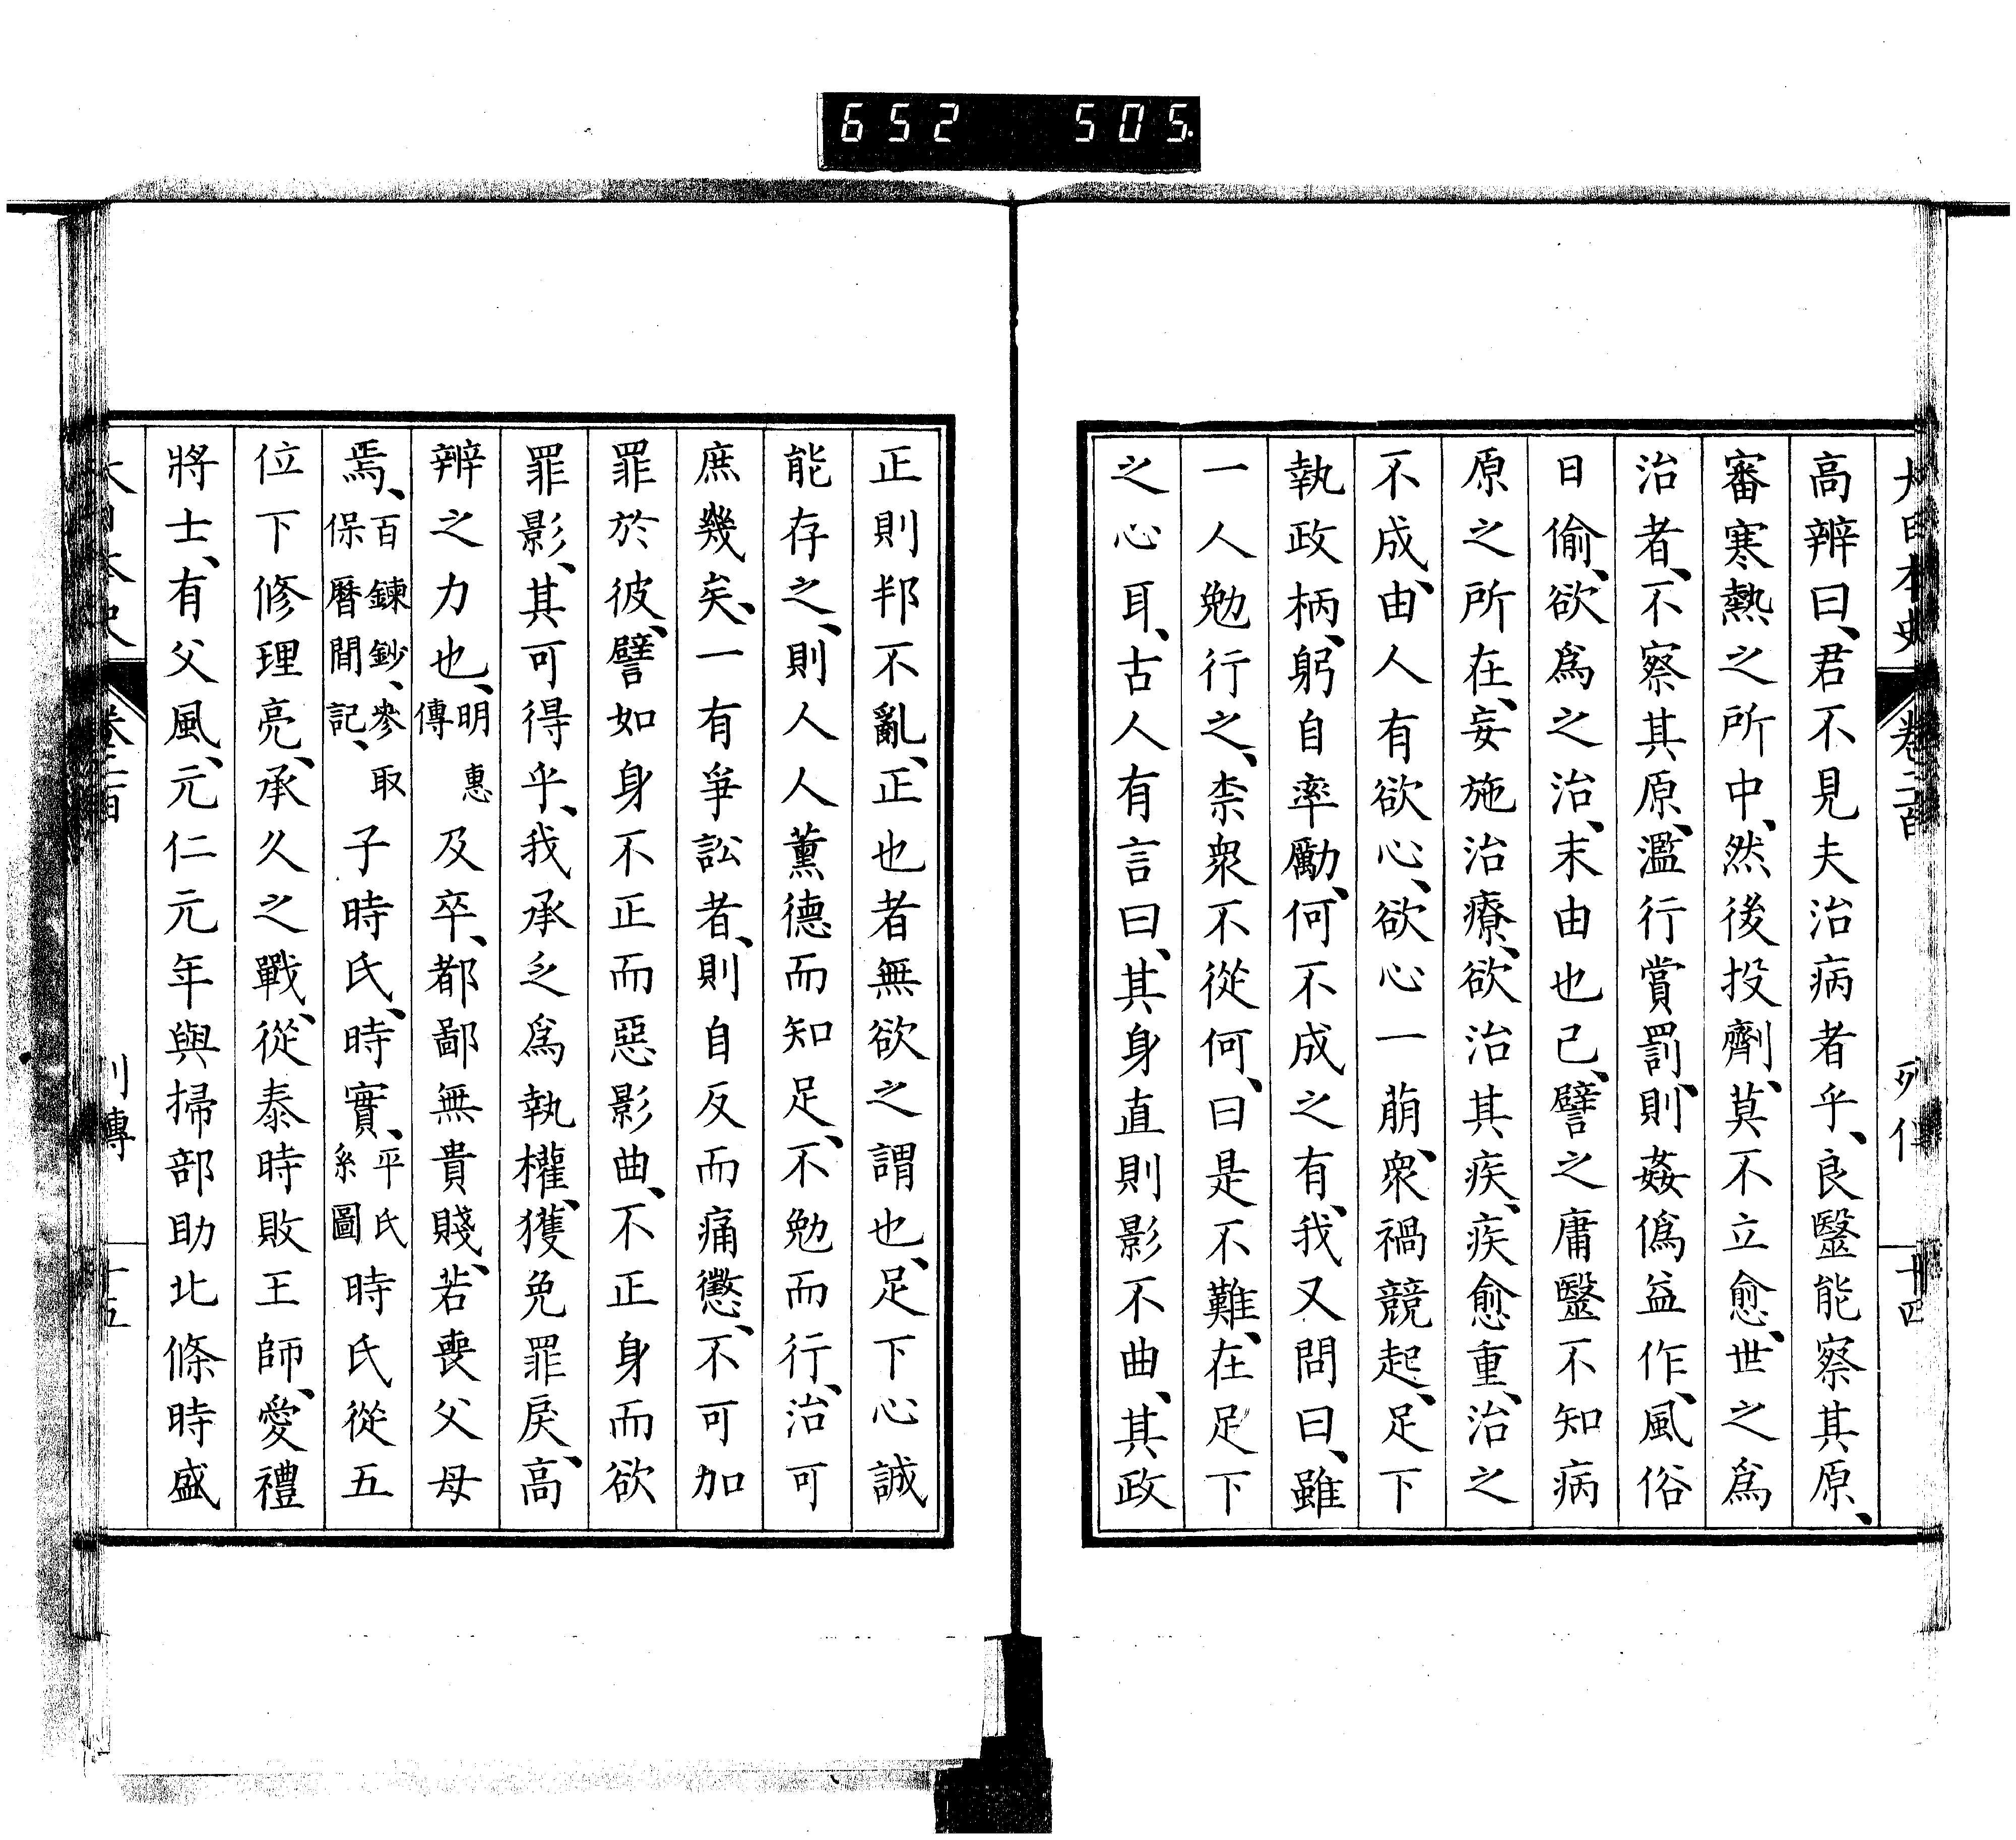 652 505.
大日本史 卷二百 列傳 十四
高辨曰、君不見夫治病者乎、良毉能察其原、
審寒熱之所中、然後投劑、莫不立愈、世之爲
治者、不察其原、濫行賞罰、則姦僞益作、風俗
日偷、欲爲之治、末由也已、譬之庸毉不知病
原之所在、妄施治療、欲治其疾、疾愈重、治之
不成、由人有欲心、欲心一萠、衆禍競起、足下
執政柄、躬自率勵、何不成之有、我又問曰、雖
一人勉行之、柰衆不從何、曰是不難、在足下
之心耳、古人有言曰、其身直則影不曲、其政
正則邦不亂、正也者無欲之謂也、足下心誠
能存之、則人人薰德而知足、不勉而行、治可
庶幾矣、一有爭訟者、則自反而痛懲、不可加
罪於彼、譬如身不正而惡影曲、不正身而欲
罪影、其可得乎、我承乏爲執權、獲免罪戾、高
辨之力也、明惠傳及卒、都鄙無貴賤、若喪父母
焉、百鍊鈔、參取保曆間記、子時氏、時實、平氏系圖時氏從五
位下修理亮、承久之戰、從泰時敗王師、愛禮
將士、有父風、元仁元年與掃部助北條時盛
大日本史 卷二百 列傳 十五